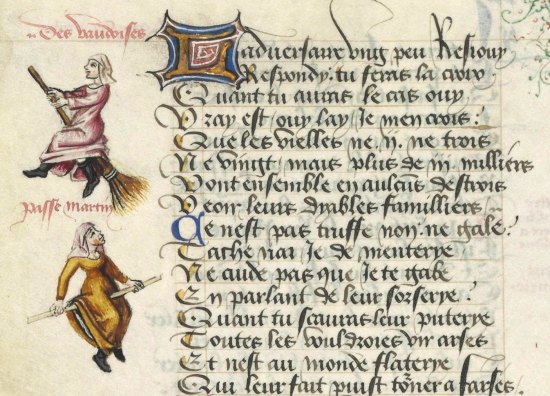 Des vaudoises
Ladversarre ung peu Resiouy
Respondy. tu feras la croix
Quant tu auras le cas ouy
Vray est ouy lay Je men crois
Que les vielles ne .ij. ne trois
Ne vingt mais plus de iij milliers
Vont ensemble en aulcuns destrois
Veoir leurs dyables familliers
passe martin
Ce nest pas truffe non ne gabe
Tache nay Je de menterye
Ne cuide pas que Je te gabe
En parlant de leur sorserye
Quant tu scauras leur puterye
Toutes les vouldroies vir arses
Et nest au monde flaterye
Qui leur fait puist to'ner a farses